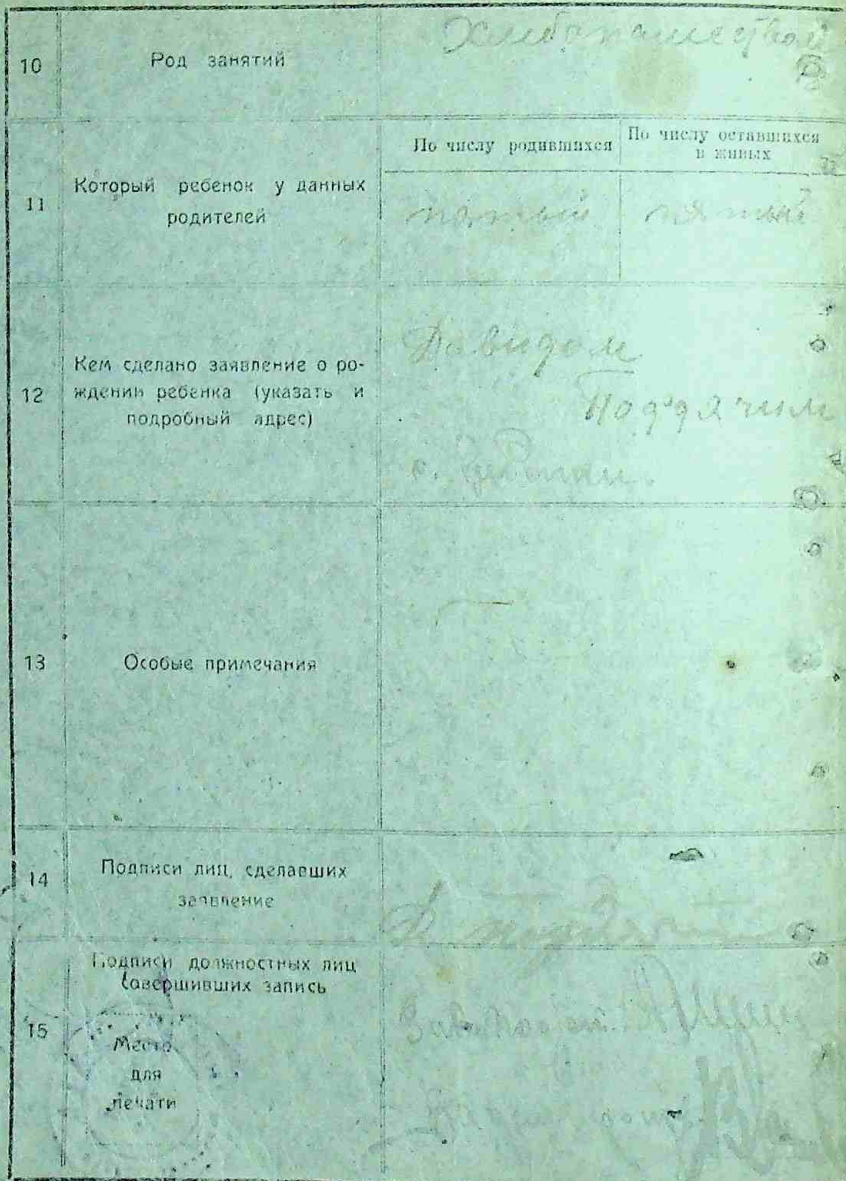 10
Род занятий
Хлебопашеством
11
Который ребенок у данных
родителей
По числу родившихся
По числу оставшихся
в живых
пятый
пятый
12
Кем сделано заявление о ро-
ждении ребенка (указать и
подробный адрес)
Давидом
Поддячим
с.
13
Особые примечания
14
Подписи лиц, сделавших
заявление
15
Подписи должностных лиц
совершивших запись
Место
для
печати